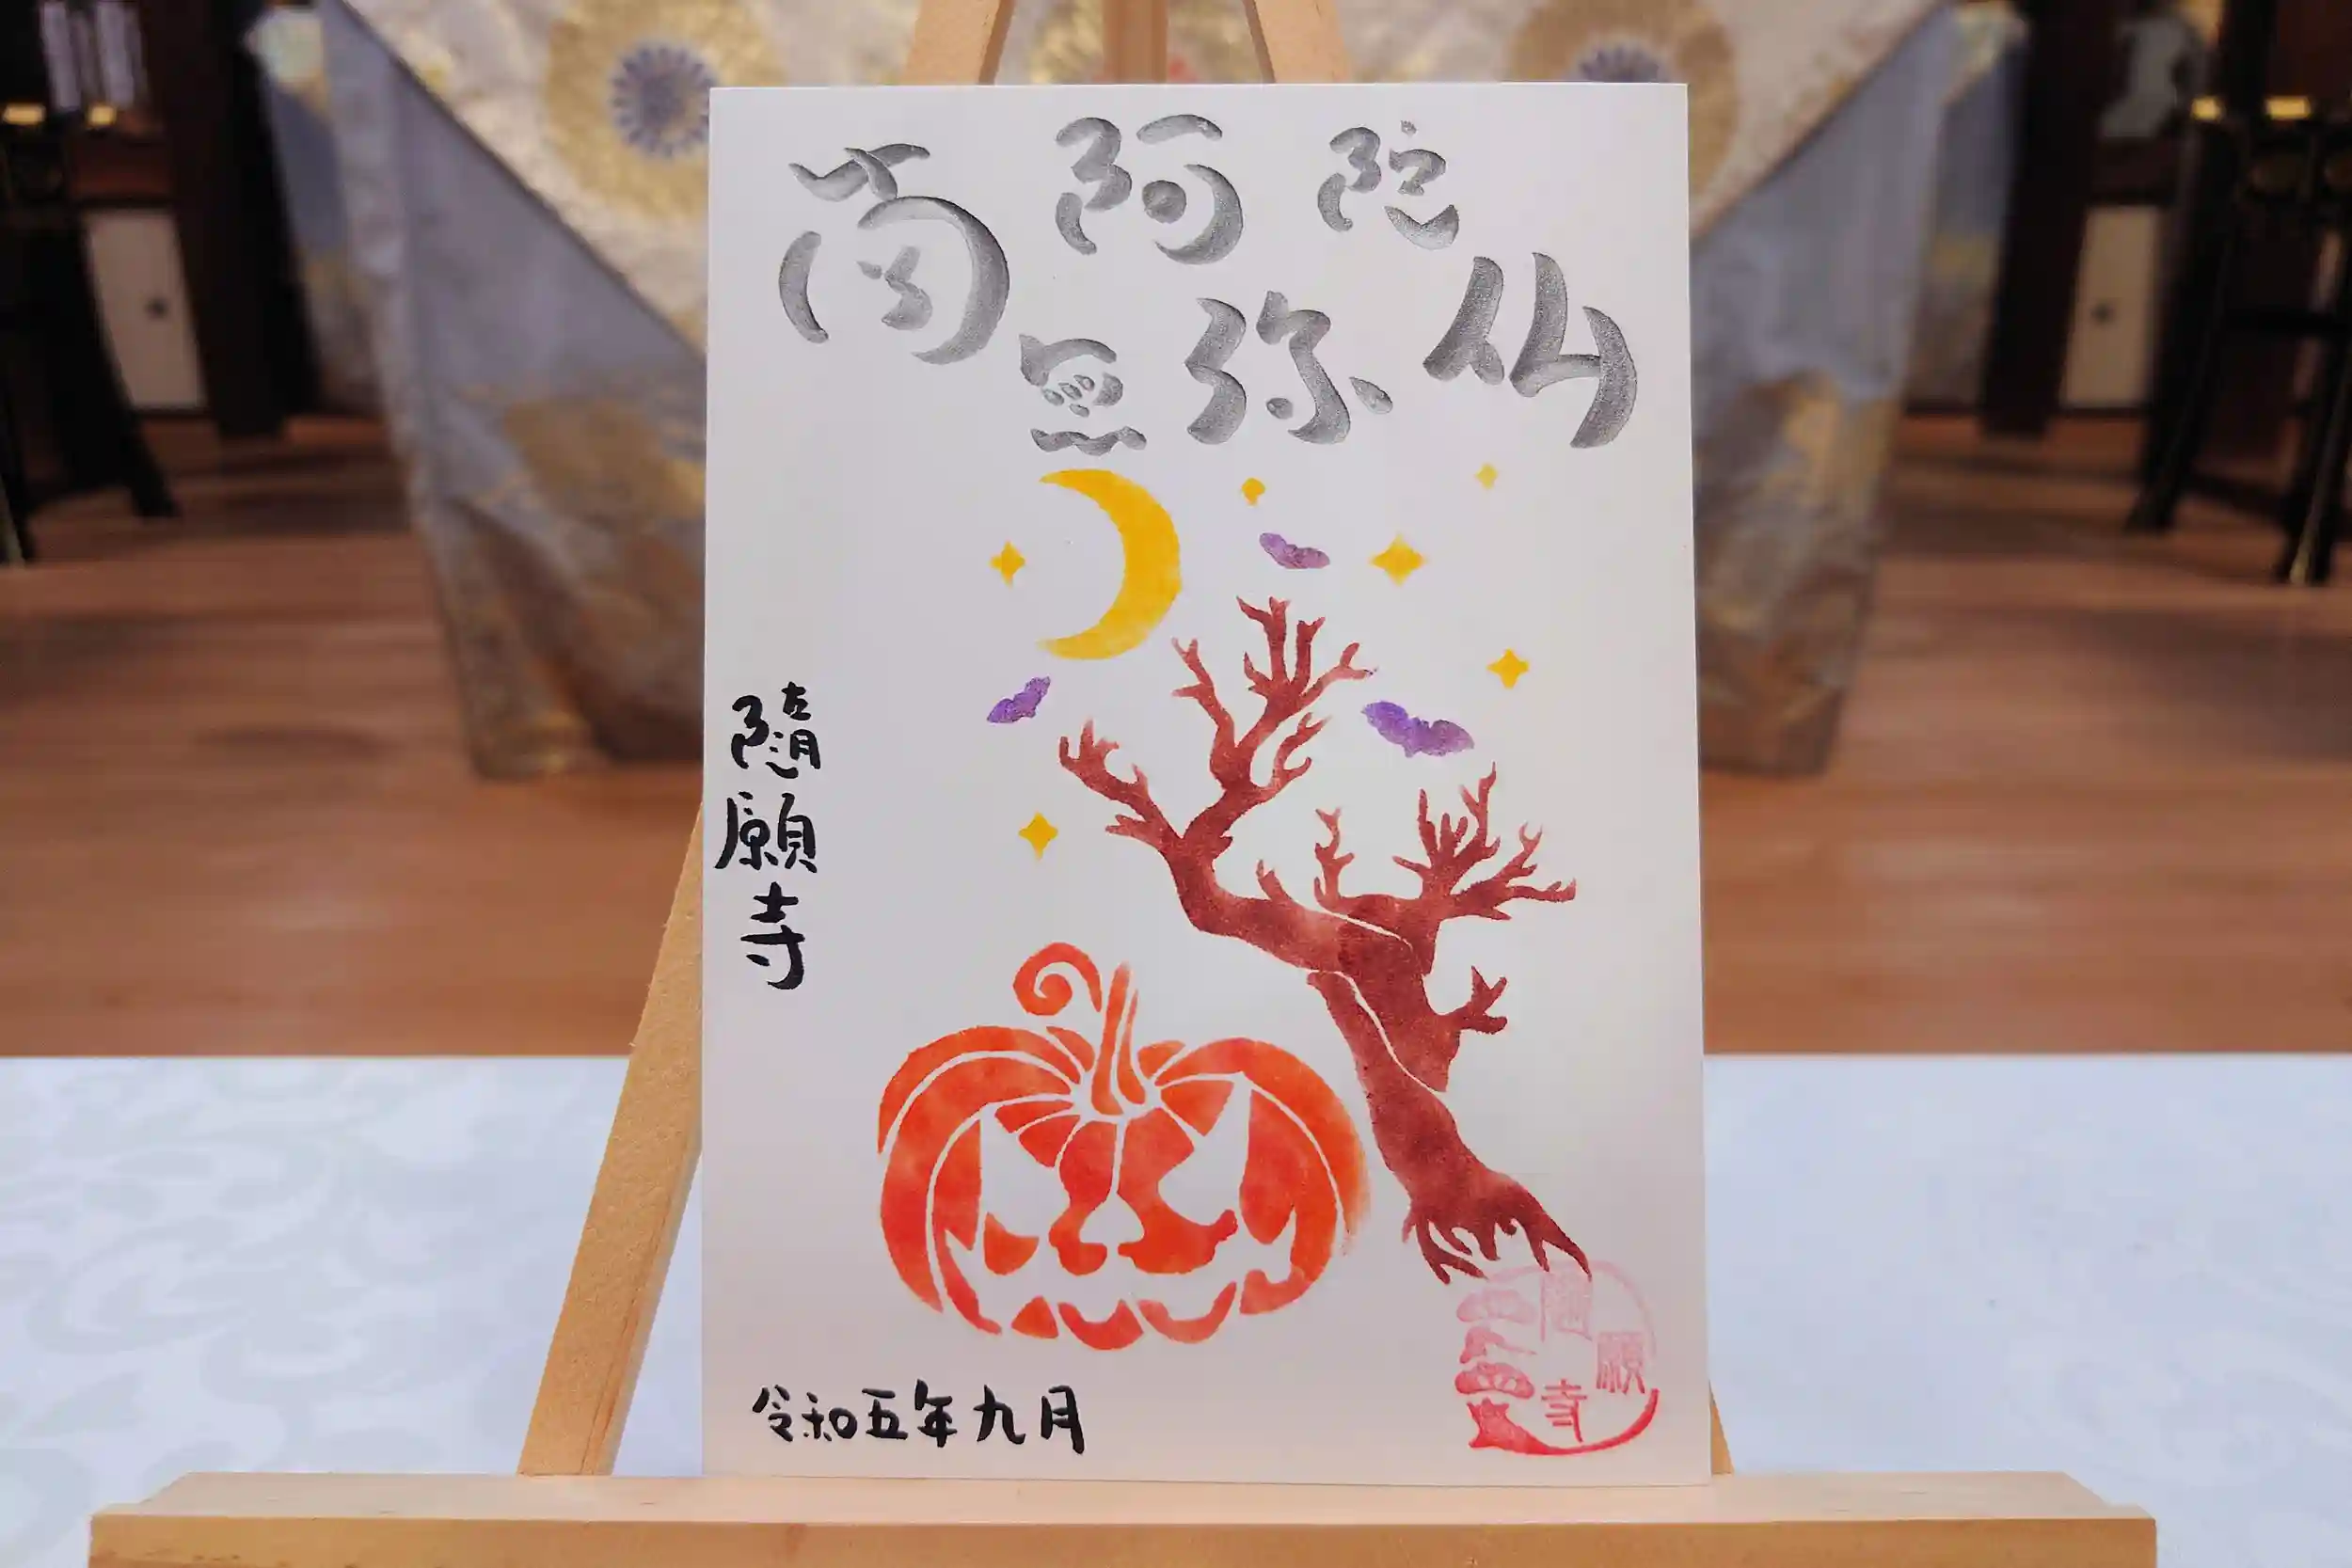 南無阿弥陀仏
隨願寺
令和五年九月
隨願寺